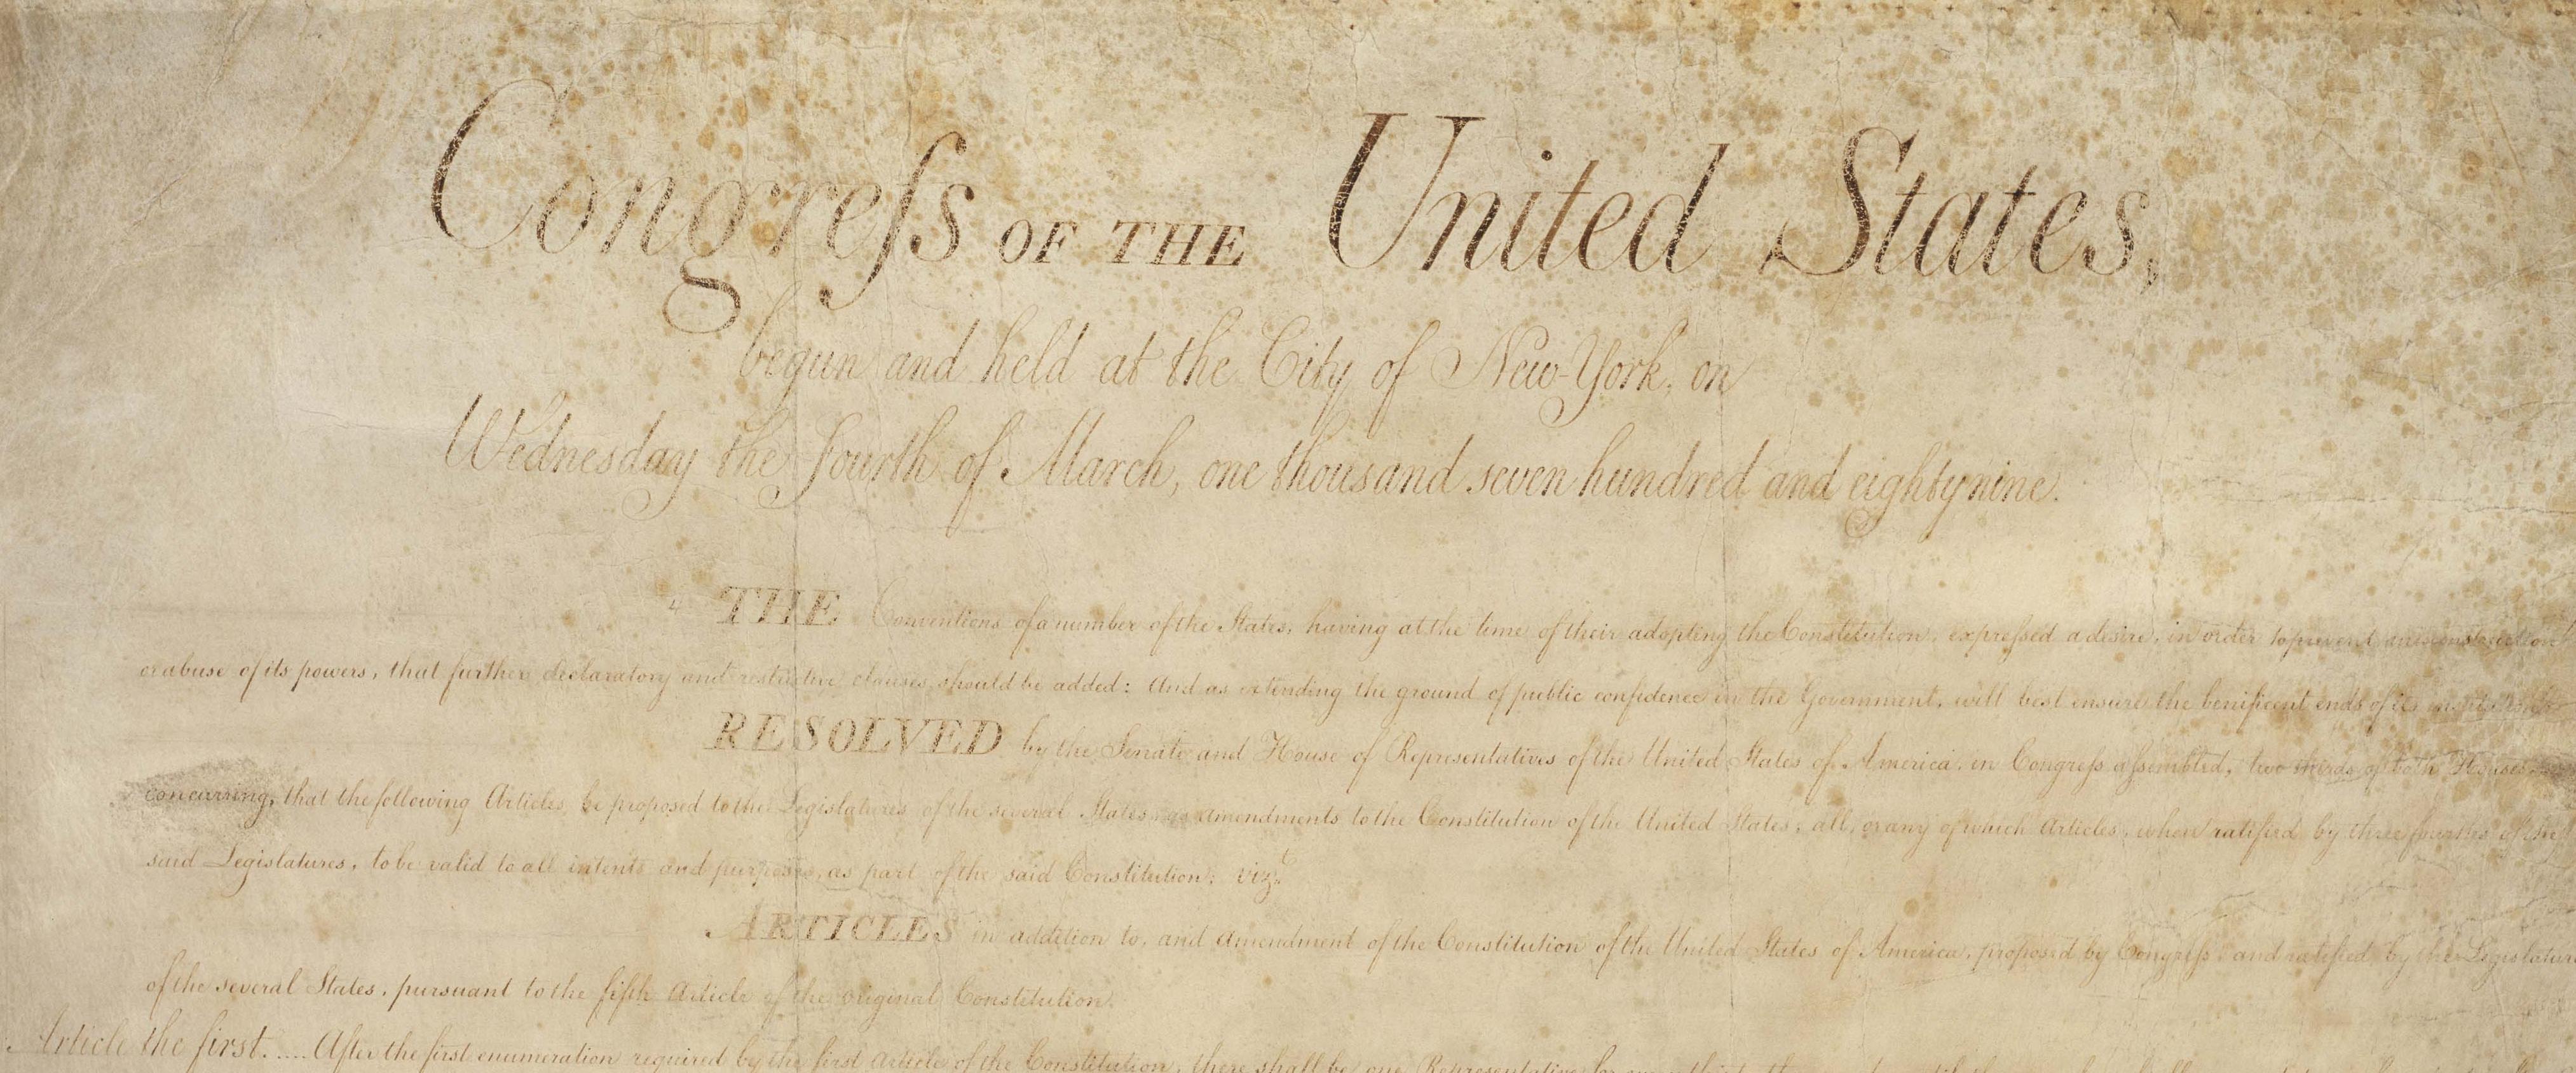 Congreſs OF THE United States,
begun and held at the City of New-York, on
Wednesday the fourth of March, one thousand seven hundred and eighty nine.
THE Conventions of a number of the States, having at the time of their adopting the Constitution, expreſsed a desire, in order to prevent misconstruction
or abuse of its powers, that further declaratory and restrictive clauses should be added: And as extending the ground of public confidence in the Government, will best ensure the benificent ends of its
RESOLVED by the Senate and House of Representatives of the United States of America, in Congreſs aſsembled, two thirds of both Houses
concurring, that the following Articles be proposed to the Legislatures of the several States, as amendments to the Constitution of the United States, all, or any of which Articles, when ratified by three fourths of the
said Legislatures, to be valid to all intents and purposes, as part of the said Constitution; viz.t
ARTICLES in addition to, and amendment of the Constitution of the United States of America, proposed by Congreſs, and ratified by the Legislatures
of the several States, pursuant to the fifth Article of the original Constitution.
Article the first..... After the first enumeration required by the first Article of the Constitution, there shall be one Representative for every thirty